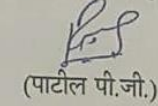 (पाटील पी.जी.)